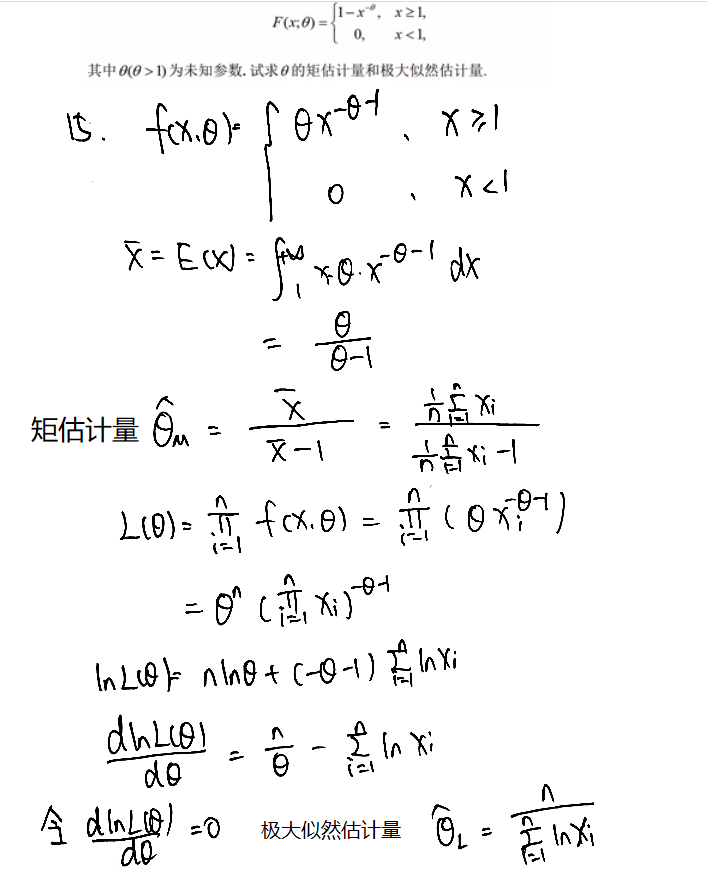 F(x;θ)={1−x^{−θ}, x≥1,
0, x<1,
其中θ(θ>1)为未知参数. 试求θ的矩估计量和极大似然估计量.
15. f(x.θ)={θx^{-θ-1}, x≥1
0, x<1
x̄ = E(x) = ∫_1^{+∞} x·θ·x^{-θ-1} dx
= θ/(θ-1)
矩估计量 θ̂_M = x̄/(x̄-1) = (1/n Σ_{i=1}^n x_i)/(1/n Σ_{i=1}^n x_i -1)
L(θ)= Π_{i=1}^n f(x.θ) = Π_{i=1}^n (θ x_i^{-θ-1})
= θ^n (Π_{i=1}^n x_i)^{-θ-1}
lnL(θ)= nlnθ + (-θ-1) Σ_{i=1}^n lnx_i
dlnL(θ)/dθ = n/θ - Σ_{i=1}^n ln x_i
令 dlnL(θ)/dθ =0 极大似然估计量 θ̂_L = n/(Σ_{i=1}^n lnx_i)